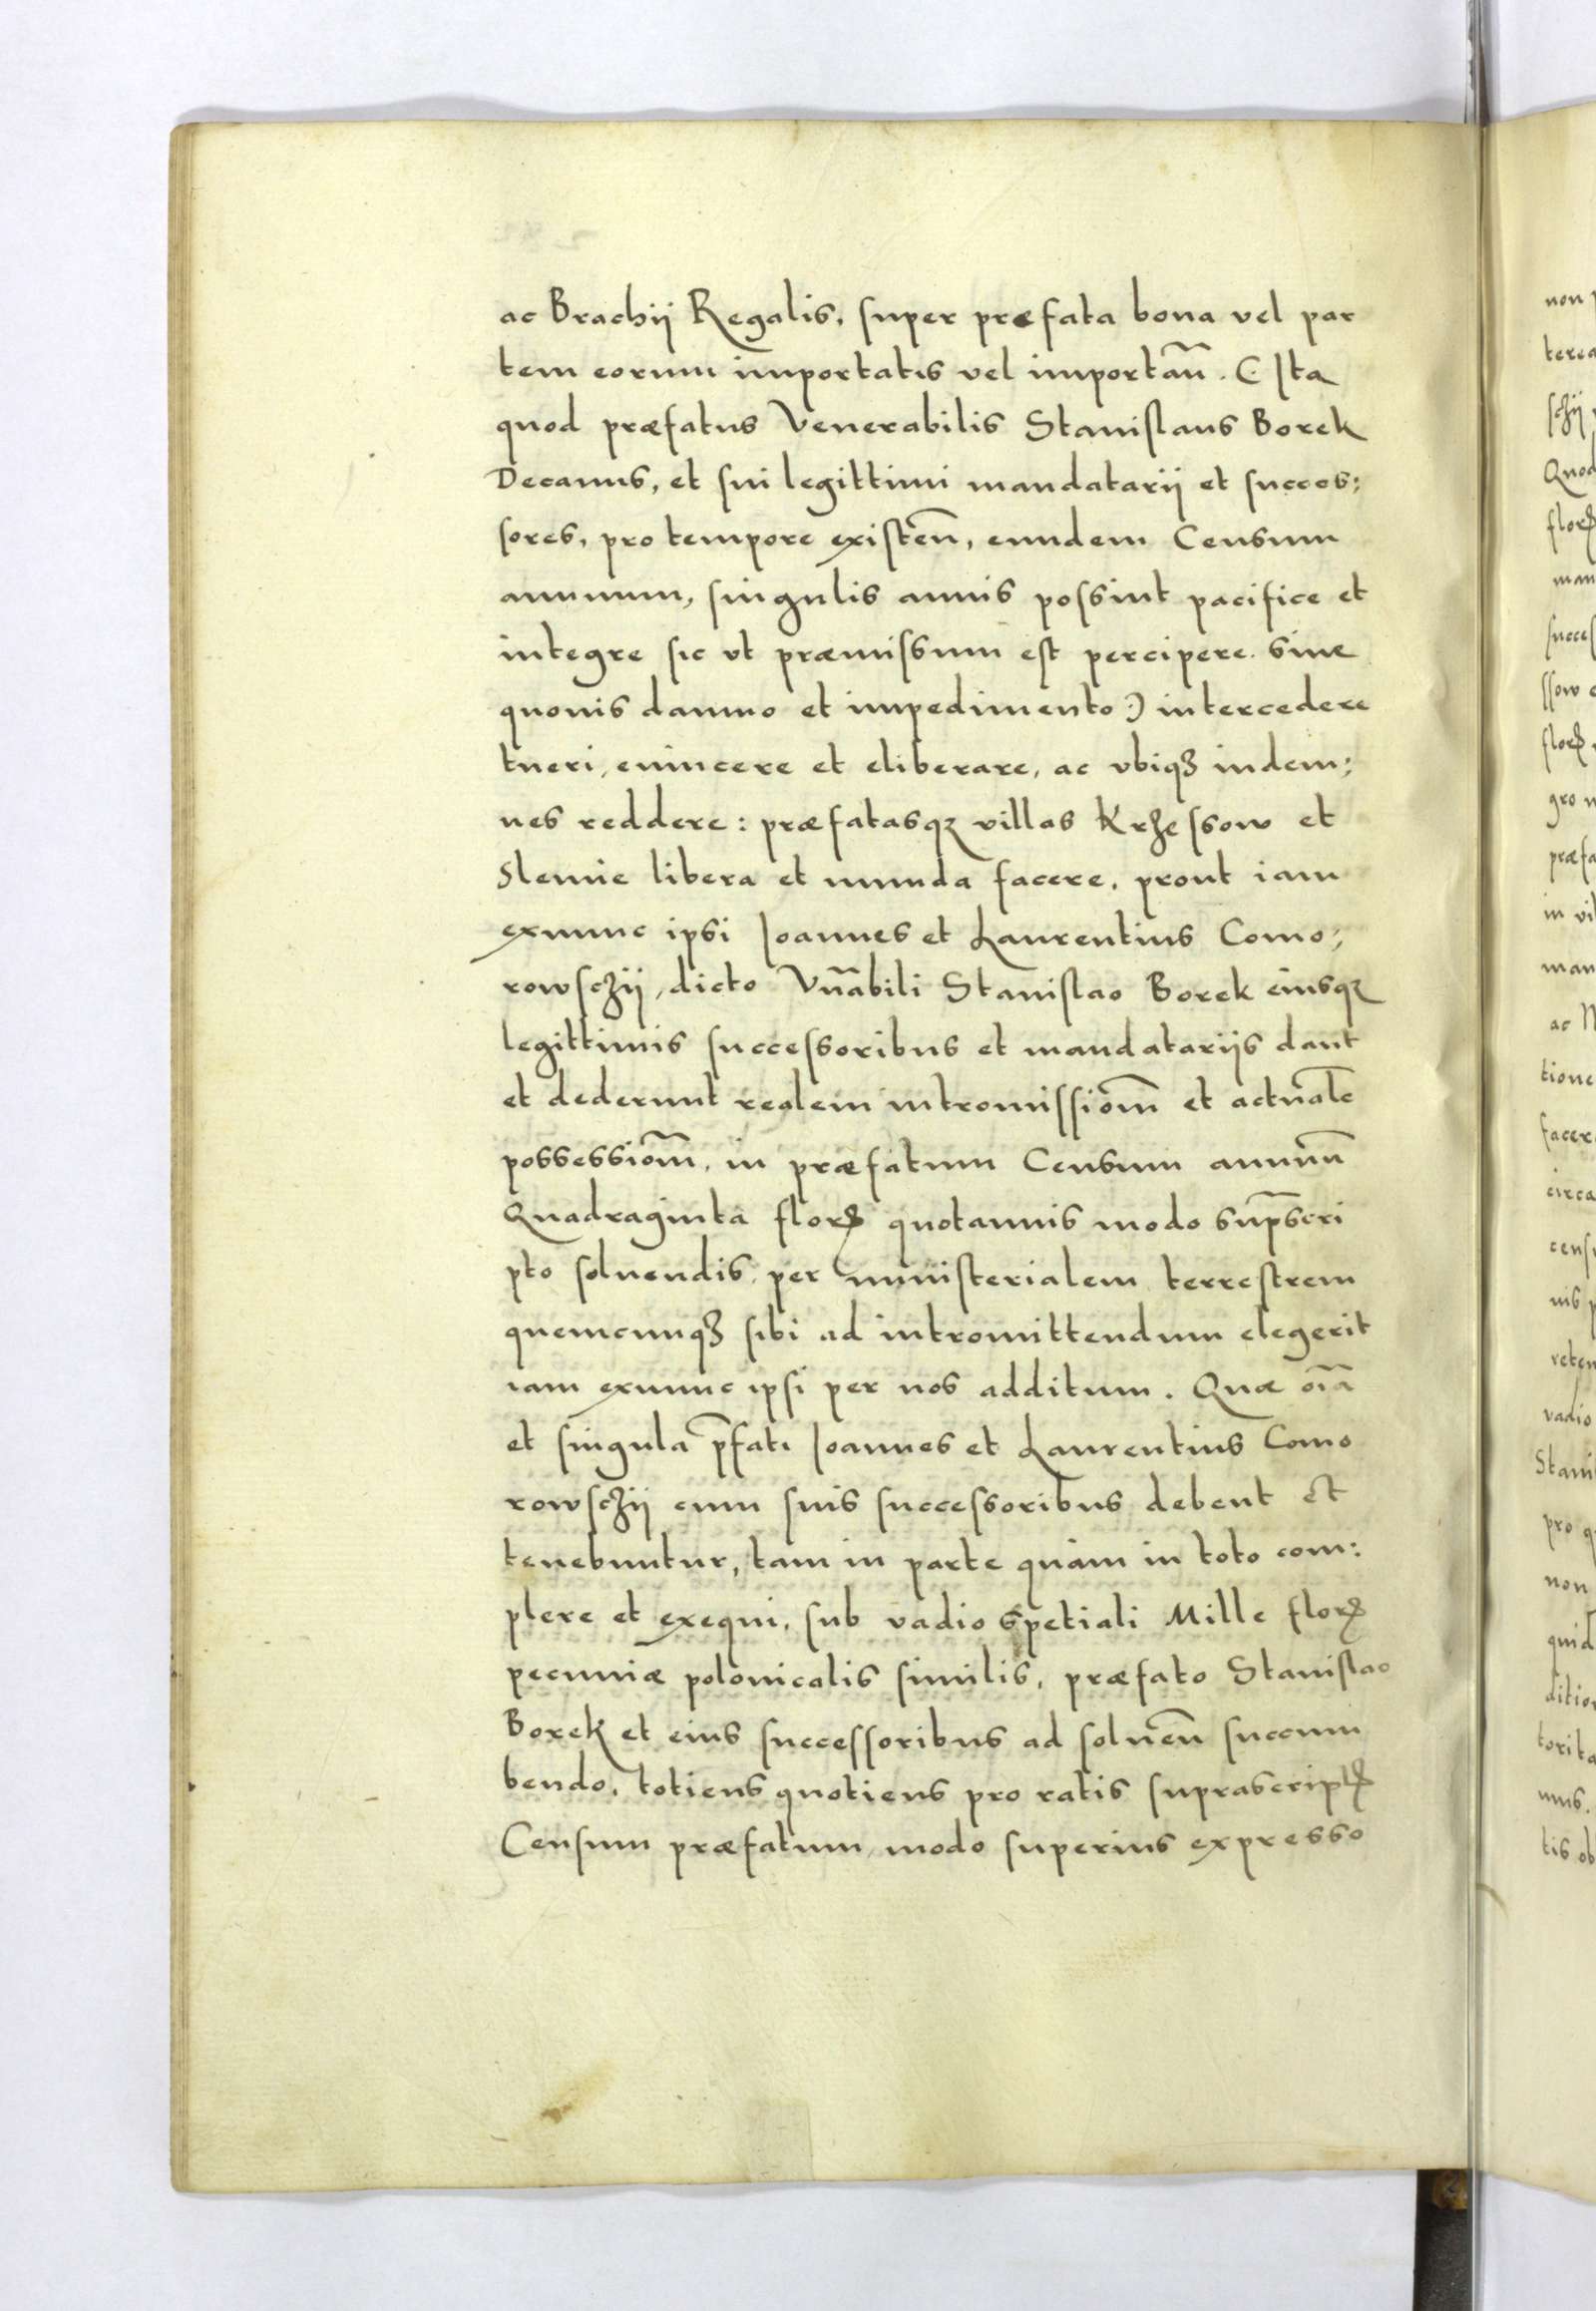 ac Brachij Regalis, super præfata bona vel par
tem eorum importatis vel importañ. (: Ita
quod præfatus Venerabilis Stanislaus Borek
Decanus, et sui legittimi mandatarij et succes:
sores, pro tempore existeñ, eundem Censum
annuum, singulis annis possint pacifice et
integre sic vt præmissum est percipere. sine
quouis damno et impedimento :) intercedere
tueri, euincere et eliberare, ac vbiqȝ indem:
nes reddere: præfatasqȝ villas Krzessow et
Slemie libera et munda facere, prout iam
exnunc ipsi Joannes et Laurentius Como:
rowsczij, dicto Vñabili Stanislao Borek eiusqȝ
legittimis successoribus et mandatarijs dant
et dederunt realem intromissiom̃ et actualẽ
possessiom̃, in præfatum Censum annuũ
Quadraginta florꝭ quotannis modo sup̃scri
pto soluendis, per ministerialem terrestrem
quemcunqȝ sibi ad intromittendum elegerit
iam exnunc ipsi per nos additum. Quæ oĩa
et singula p̃fati Joannes et Laurentius Como
rowsczij cum suis successoribus debent et
tenebuntur, tam in parte quam in toto com:
plere et exequi, sub vadio spetiali Mille florꝭ
pecuniæ polonicalis similis, præfato Stanislao
Borek et eius successoribus ad solueñ succum
bendo, totiens quotiens pro ratis suprascriptꝭ
Censum præfatum, modo superius expresso